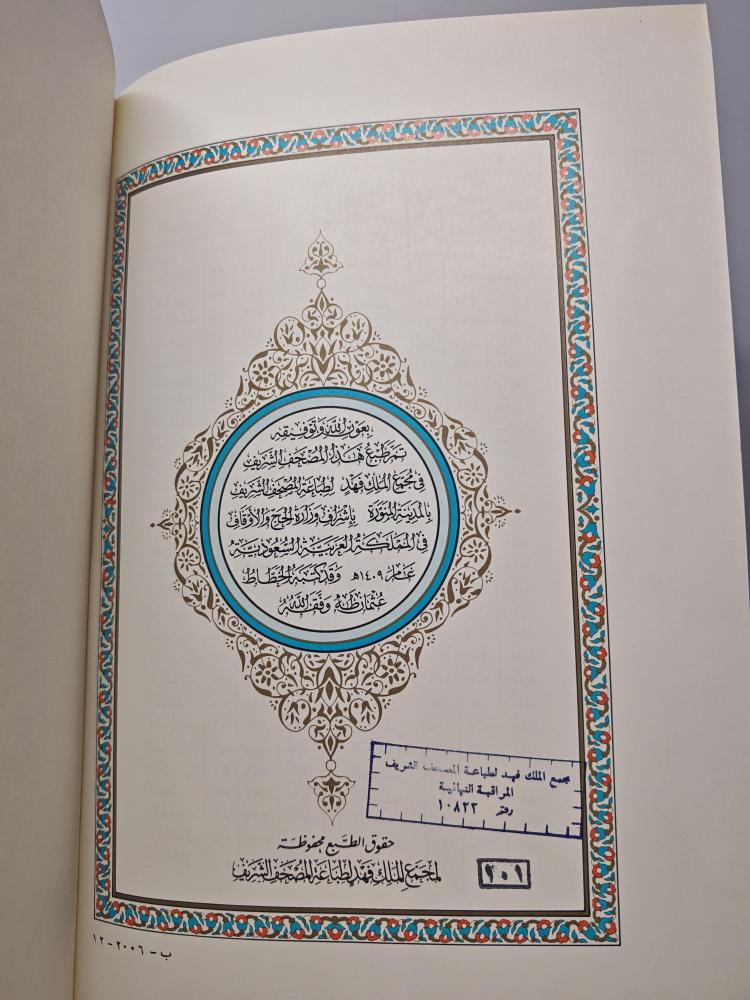 بِعَوْنِ اللَّهِ وَتَوْفِيقِهِ
تَمَّ طَبْعُ هَٰذَا المُصْحَفِ الشَّرِيفِ
فِي مُجَمَّعِ المَلِكِ فَهْدٍ لِطِبَاعَةِ المُصْحَفِ الشَّرِيفِ
بِالمَدِينَةِ المُنَوَّرَةِ بِإِشْرَافِ وِزَارَةِ الحَجِّ وَالأَوْقَافِ
فِي المَمْلَكَةِ العَرَبِيَّةِ السُّعُودِيَّةِ
عَامَ ١٤٠٩هـ وَقَدْ كَتَبَهُ الخَطَّاطُ
عُثْمَانُ طٰهٰ وَفَّقَهُ اللَّهُ
مجمع الملك فهد لطباعة المصحف الشريف
المراقبة النهائية
رقم ١٠٨٢٣
حقوق الطبع محفوظة
لِمُجَمَّعِ المَلِكِ فَهْدٍ لِطِبَاعَةِ المُصْحَفِ الشَّرِيفِ
٢٠١
ب - ٢٠٠٦ - ١٢